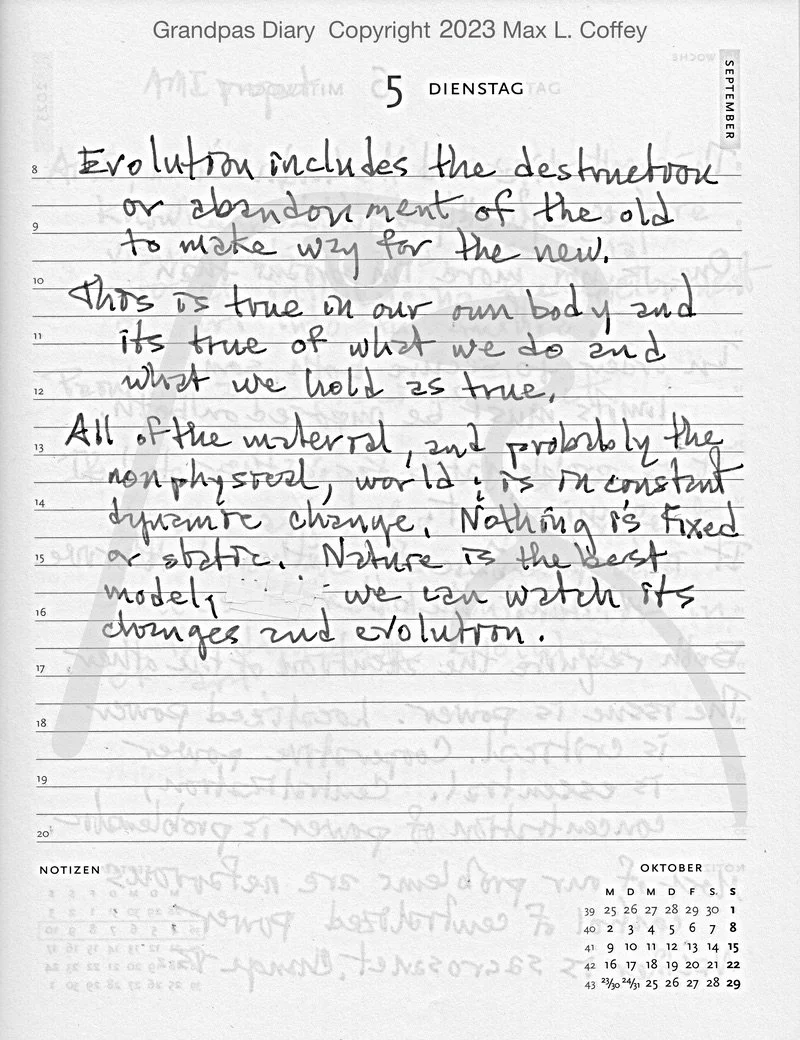 Grandpas Diary Copyright 2023 Max L. Coffey
5 DIENSTAG
SEPTEMBER
8 Evolution includes the destruction
or abandonment of the old
9 to make way for the new.
10 This is true in our own body and
11 its true of what we do and
12 what we hold as true.
13 All of the material, and probably the
nonphysical, world; is in constant
14 dynamic change. Nothing is fixed
15 or static. Nature is the best
model; we can watch its
16 changes and evolution.
17
18
19
20
NOTIZEN
OKTOBER
M D M D F S S
39 25 26 27 28 29 30 1
40 2 3 4 5 6 7 8
41 9 10 11 12 13 14 15
42 16 17 18 19 20 21 22
43 23/30 24/31 25 26 27 28 29